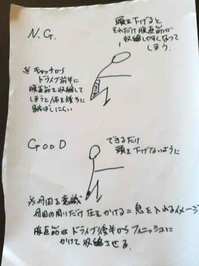 N.G.
頭を下げると
それだけで腹直筋が
収縮しやすくなって
しまう。
※キャッチから
ドライブ前半に
腹直筋を収縮して
しまうと体を後ろに
倒しにくい
GooD
できるだけ
頭を下げないように
圧をかける＝息を入れるイメージ
腹直筋はドライブ後半からフィニッシュに
かけて収縮させる。